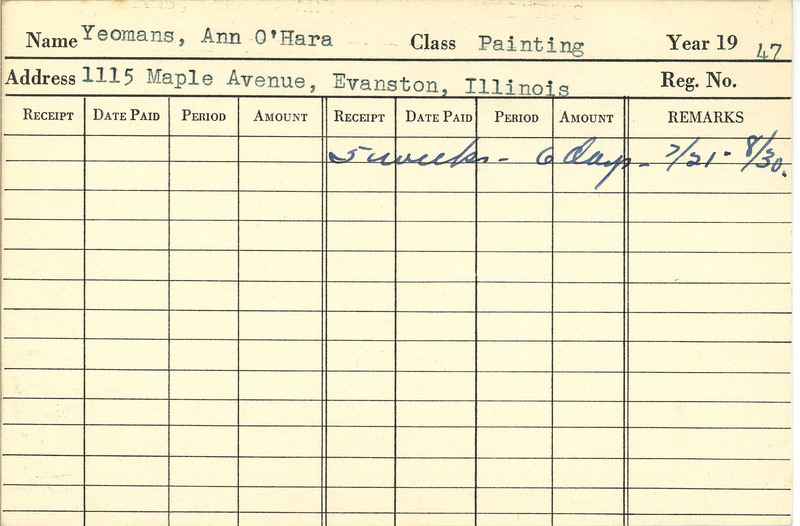 Name Yeomans, Ann O'Hara Class Painting Year 19 47
Address 1115 Maple Avenue, Evanston, Illinois Reg. No.
RECEIPT DATE PAID PERIOD AMOUNT RECEIPT DATE PAID PERIOD AMOUNT REMARKS
5 weeks - 6 days - 7/21 - 8/30.